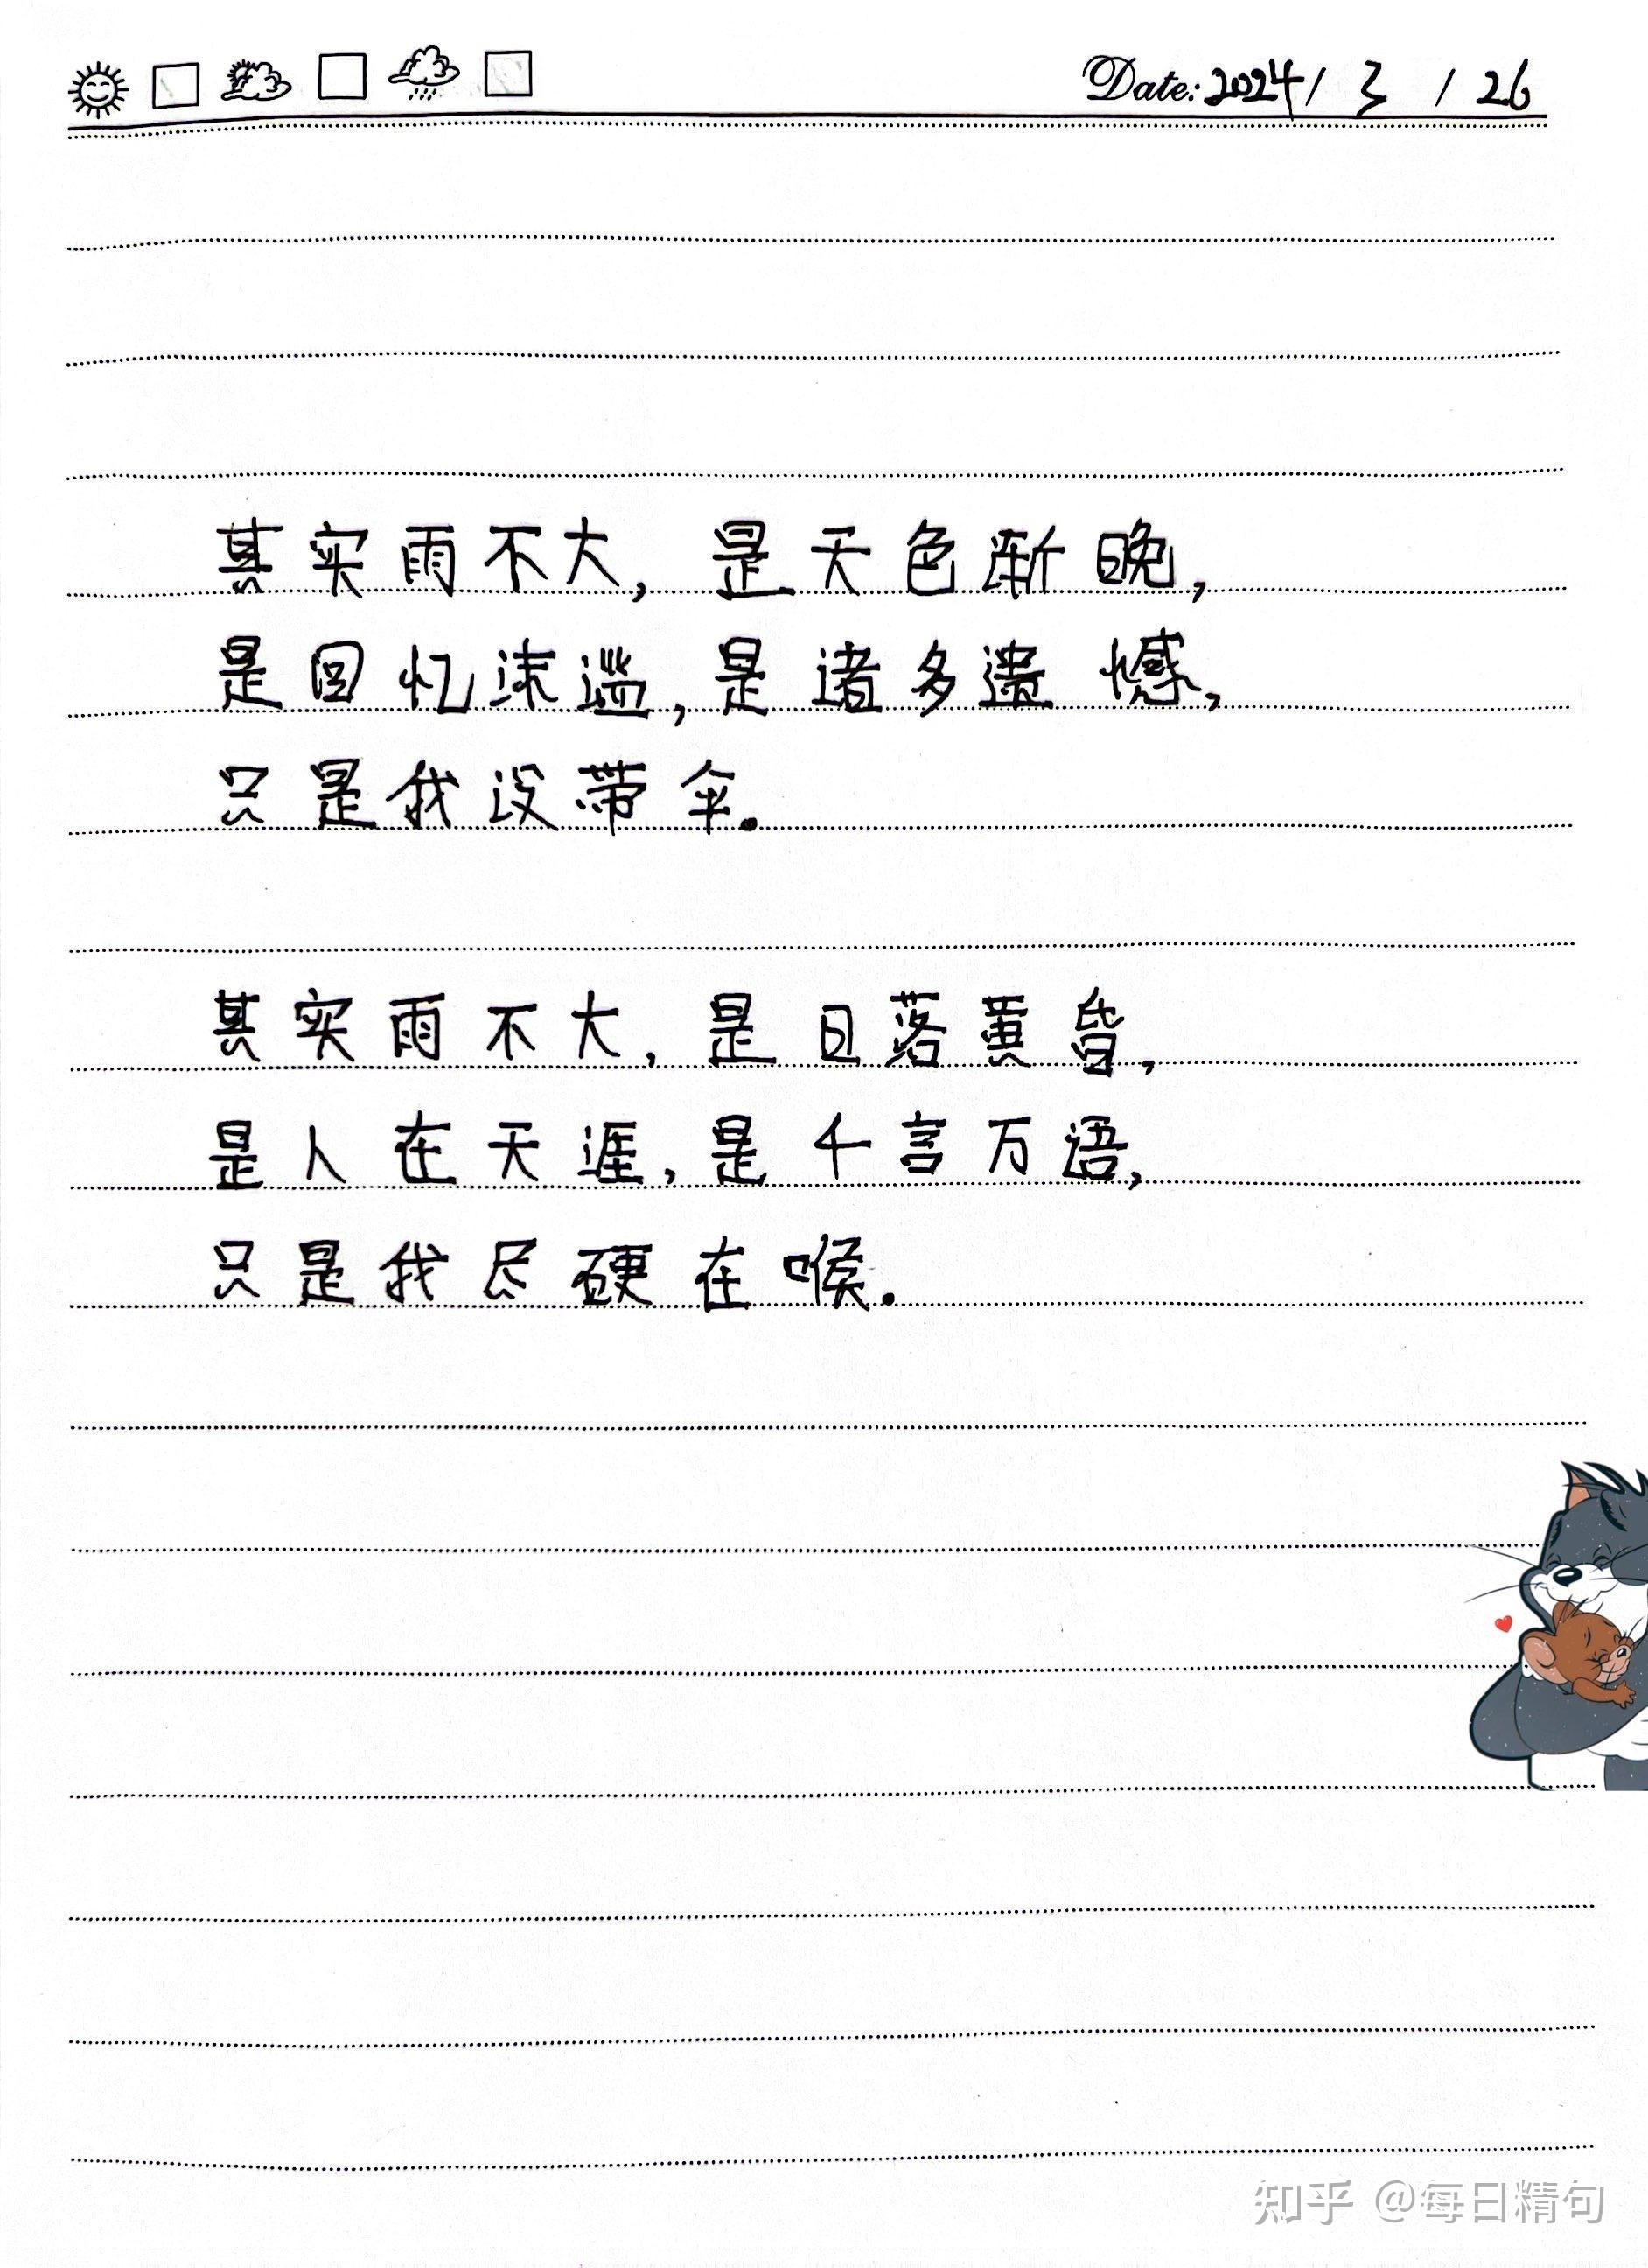 Date: 2024 / 3 / 26
其实雨不大，是天色渐晚，
是回忆沫滥，是诸多遗憾，
只是我没带伞。
其实雨不大，是日落黄昏，
是人在天涯，是千言万语，
只是我尽硬在喉。
知乎 @每日精句